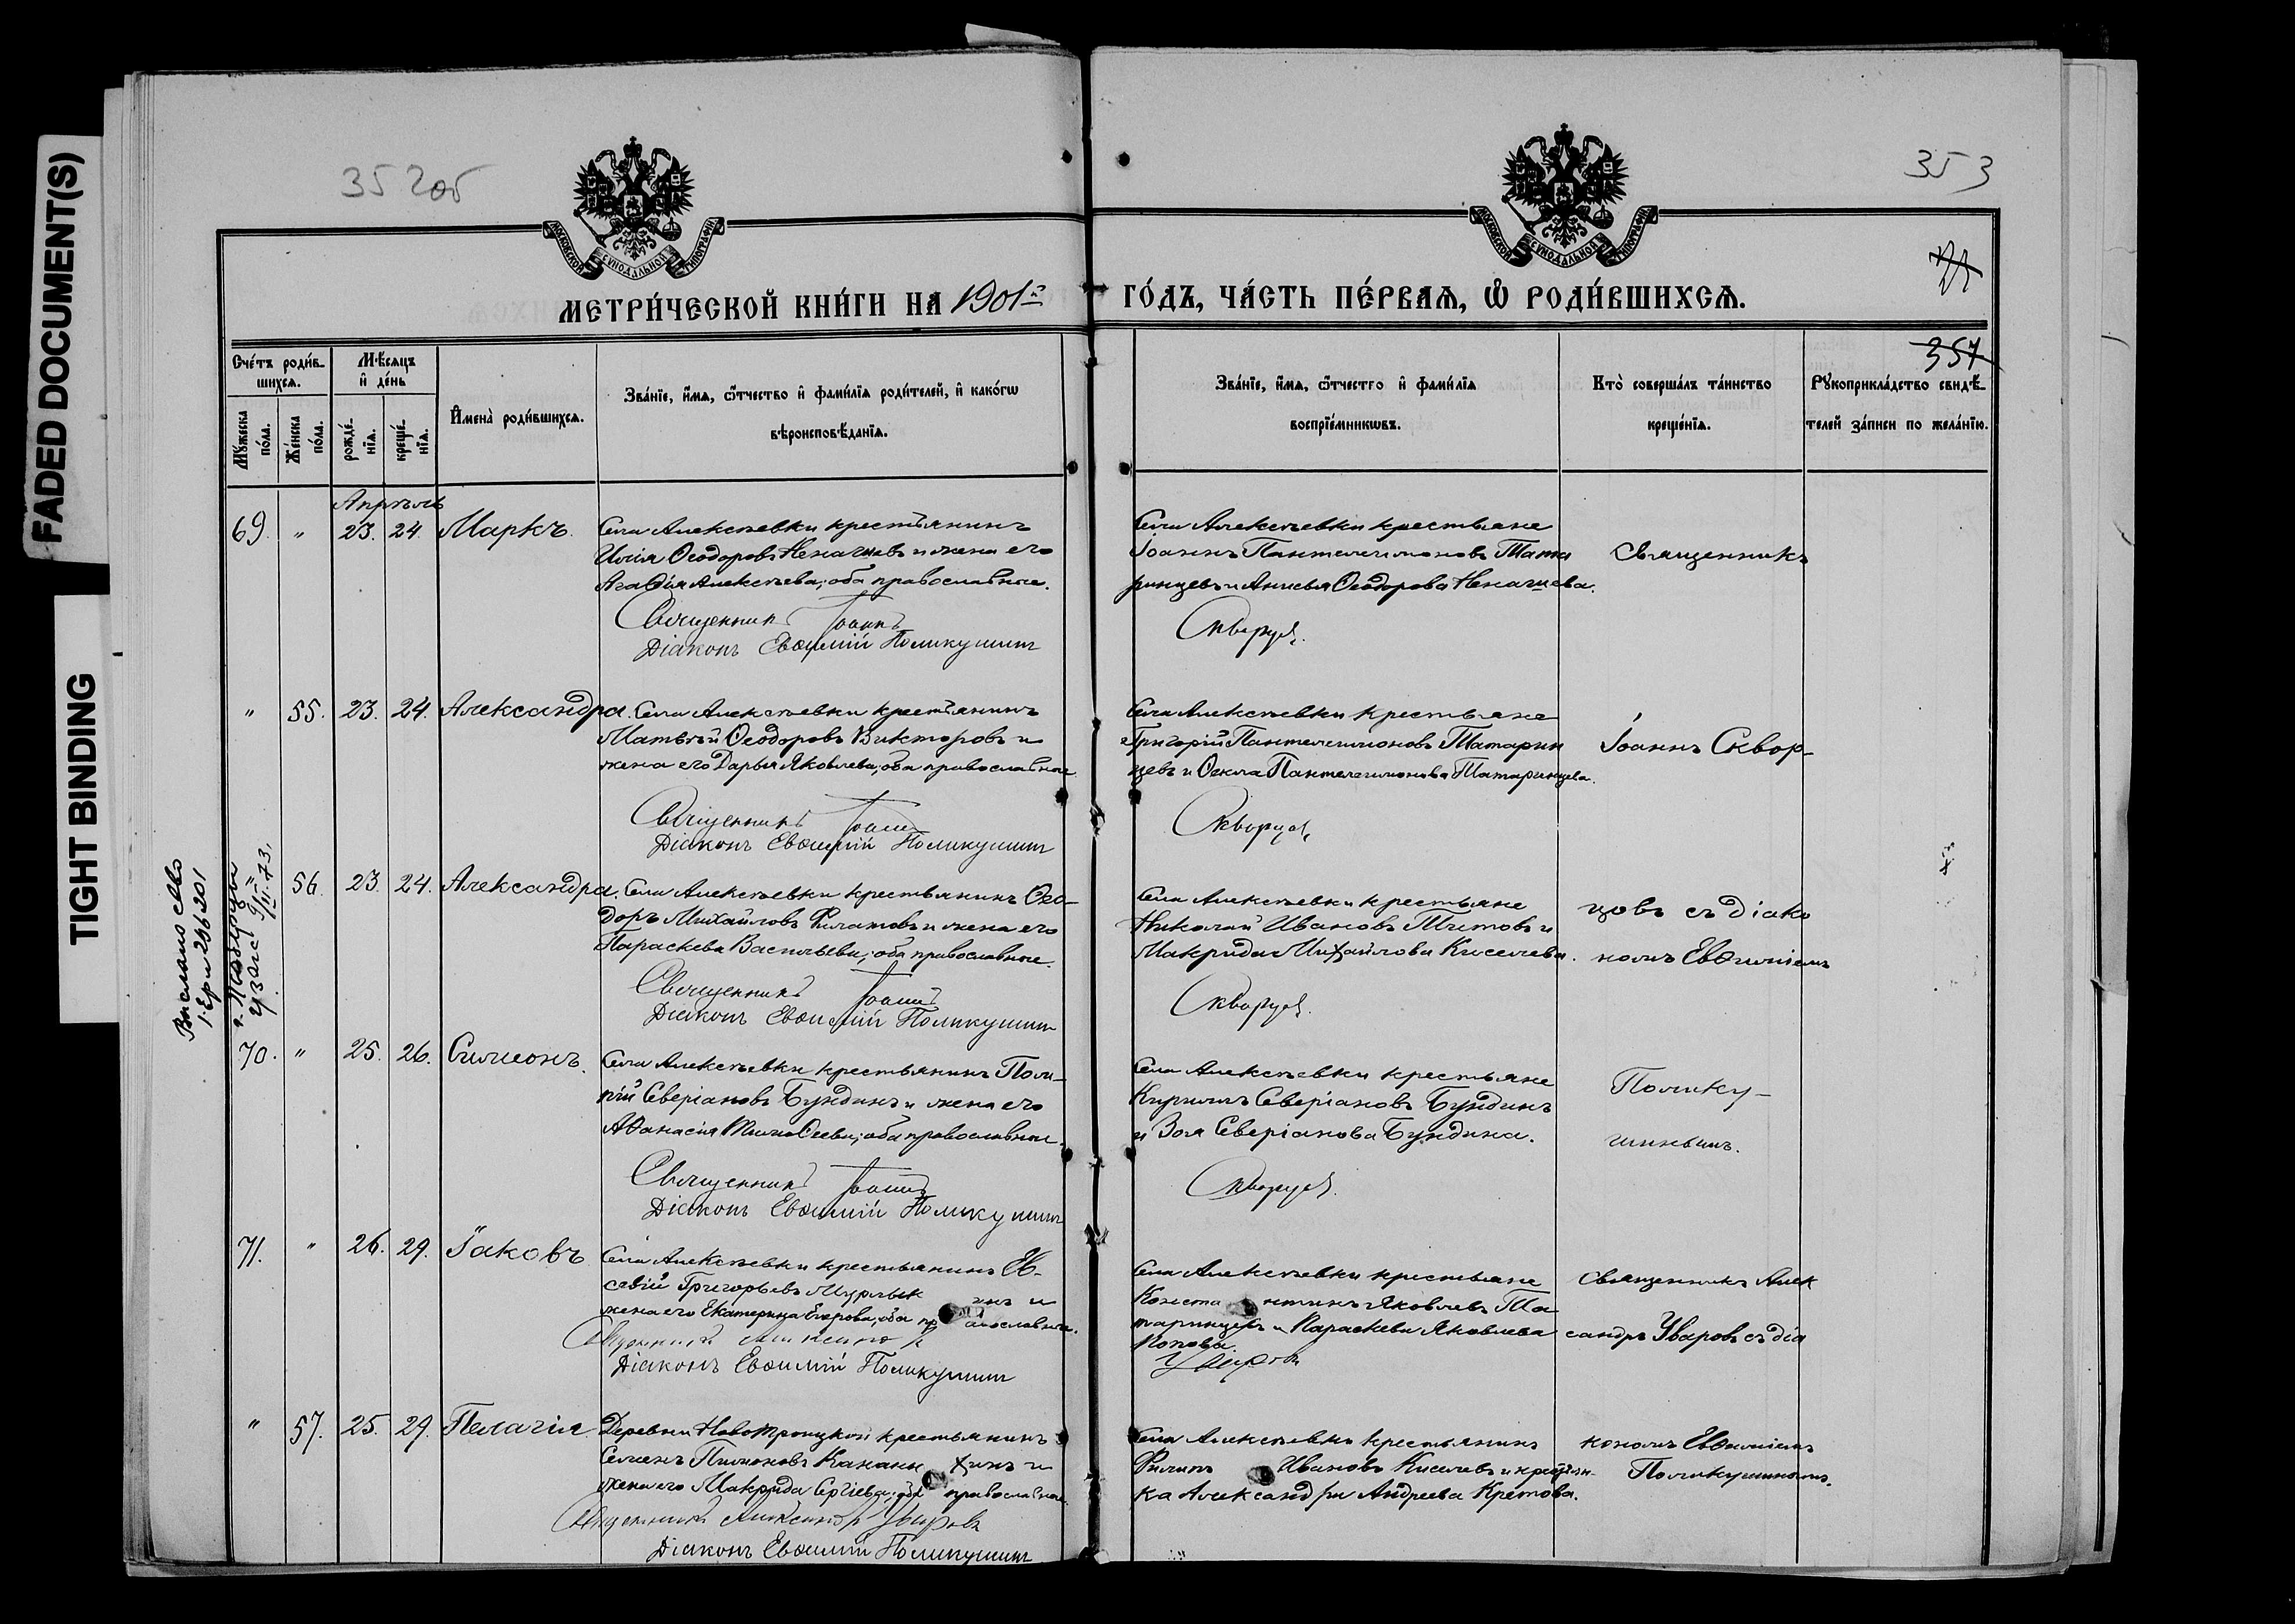 FADED DOCUMENT(S)
TIGHT BINDING
352об
353
МОСКОВСКОЙ СѴНОДАЛЬНОЙ ТИПОГРАФІИ
МОСКОВСКОЙ СѴНОДАЛЬНОЙ ТИПОГРАФІИ
МЕТРИ́ЧЕСКОЙ КНИ́ГИ НА 1901й
ГО́ДЪ, ЧА́СТЬ ПЕ́РВАѦ, Ѡ҆ РОДИ́ВШИХСѦ.
357
Сче́тъ роди́в-
шихсѧ.
Мꙋ́жеска
по́ла.
Же́нска
по́ла.
Мѣ́сѧцъ
и҆ де́нь
рожде́-
нїѧ.
креще́-
нїѧ.
И҆мена̀ роди́вшихсѧ.
Зва́нїе, и҆́мѧ, ѻ҆́тчество и҆ фами́лїѧ роди́телей, и҆ како́гѡ
вѣроисповѣ́данїѧ.
Зва́нїе, и҆́мѧ, ѻ҆́тчество и҆ фами́лїѧ
воспрїе́мникѡвъ.
Кто̀ соверша́лъ та́инство
креще́нїѧ.
Рꙋкоприкла́дство свидѣ́-
телей за́писи по жела́нїю.
Апрѣль
69. " 23. 24. Маркъ.
Села Алексѣевки крестьянинъ
Илія Ѳеодоровъ Ненашевъ и жена его
Агаѳія Алексѣева; оба православные.
Священникъ Іоаннъ
Діаконъ Евѳимій Поликушинъ
Села Алексѣевки крестьяне
Іоаннъ Пантелеимоновъ Тата
ринцевъ и Анисья Ѳеодорова Ненашева.
Скворцов.
Священникъ
" 55. 23. 24. Александра.
Села Алексѣевки крестьянинъ
Матвѣй Ѳеодоровъ Викторовъ и
жена его Дарья Яковлева; оба православные
Священникъ Іоаннъ
Діаконъ Евѳимій Поликушинъ
Села Алексѣевки крестьяне
Григорій Пантелеимоновъ Татарин
цевъ и Ѳекла Пантелеимонова Татаринцева.
Скворцов.
Іоаннъ Сквор-
Выслано св-во
56. 23. 24. Александра.
Села Алексѣевки крестьянинъ Ѳео-
доръ Михайловъ Филатовъ и жена его
Параскева Васильева; оба православные.
Священникъ Іоаннъ
Діаконъ Евѳимій Поликушинъ
Села Алексѣевки крестьяне
Николай Ивановъ Титовъ и
Макрида Михайлова Киселева.
Скворцов.
цовъ съ діако
номъ Евѳиміемъ
70. " 25. 26. Симеонъ.
Села Алексѣевки крестьянинъ
Северіановъ Бундинъ и жена его
Аѳанасія Тимоѳеева; оба православные.
Священникъ Іоаннъ
Діаконъ Евѳимій Поликушинъ
Села Алексѣевки крестьяне
Кириллъ Северіановъ Бундинъ
и Зоя Северіанова Бундина.
Скворцов.
Полику-
шинымъ.
71. " 26. 29. Іаковъ
Села Алексѣевки крестьянинъ Ев-
севій Григорьевъ инъ и
жена его Екатерина Егорова; оба православные.
Священникъ Александр
Діаконъ Евѳимій Поликушинъ
Села Алексѣевки крестьяне
Константинъ Яковлевъ Та
таринцевъ и Параскева Яковлева
Попова.
Уваров
Священникъ Алек
сандръ Уваровъ съ діа
" 57. 25. 29. Пелагія
Деревни Новотроицкой крестьянинъ
Семенъ Пименовъ и
жена его Макрида Сергіева; оба православные.
Священникъ Александр Уваровъ
Діаконъ Евѳимій Поликушинъ
Села Алексѣевки крестьянинъ
Филиппъ Ивановъ Киселевъ и крестьян-
ка Александра Андреева Кретова.
кономъ Евѳиміемъ
Поликушинымъ.